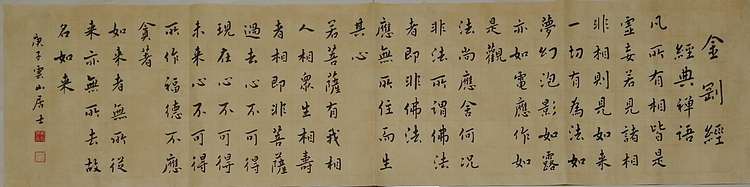 金剛經
經典禪語
凡所有相皆是
虛妄若見諸相
非相則見如来
一切有為法如
夢幻泡影如露
亦如電應作如
是觀
法尚應舍何況
非法所謂佛法
者即非佛法
應無所住而生
其心
若菩薩有我相
人相眾生相壽
者相即非菩薩
過去心不可得
現在心不可得
未来心不可得
所作福德不應
貪著
如来者無所從
来亦無所去故
名如来
庚子雲山居士